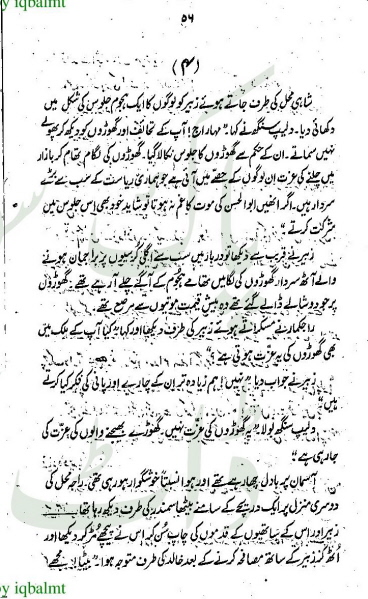 by iqbalmt
۵۶
(۴)
شاہی محل کی طرف جاتے ہوئے زبیر کو لوگوں کا ایک ہجوم جلوس کی شکل میں
دکھائی دیا۔ دلیپ سنگھ نے کہا۔ "مہاراج! آپ کے تحائف اور گھوڑوں کو دیکھ کر پھولے
نہیں سماتے۔ ان کے حکم سے گھوڑوں کا جلوس نکالا گیا۔ گھوڑوں کی لگام تھام کر بازار
میں چلنے کی عزت ان لوگوں کے حصے میں آئی ہے جو ہماری ریاست کے سب سے بڑے
سردار ہیں۔ اگر انھیں ابوالحسن کی موت کا غم نہ ہوتا تو شاید خود بھی اس جلوس میں
شرکت کرتے"
زبیر نے قریب سے دیکھا تو دربار میں سب سے اگلی کرسیوں پر براجمان ہونے
والے آٹھ سردار گھوڑوں کی لگامیں تھامے ہجوم کے آگے چلے آ رہے تھے۔ گھوڑوں
پر جو دوشالے ڈالے گئے تھے وہ بیش قیمت موتیوں سے مرصع تھے۔
راجکمار نے مسکراتے ہوئے زبیر کی طرف دیکھا اور کہا۔ "کیا آپ کے ملک میں
بھی گھوڑوں کی یہ عزت ہوتی ہے؟"
زبیر نے جواب دیا "نہیں! ہم زیادہ تر ان کے چارے اور پانی کی فکر کیا کرتے
ہیں"
دلیپ سنگھ بولا "یہ گھوڑوں کی عزت نہیں۔ گھوڑے بھیجنے والوں کی عزت کی
جا رہی ہے"
آسمان پر بادل چھا رہے تھے اور ہوا نسبتاً خوشگوار ہو رہی تھی۔ راجہ محل کی
دوسری منزل پر ایک دریچے کے سامنے بیٹھا سمندر کی طرف دیکھ رہا تھا۔
زبیر اور اس کے ساتھیوں کے قدموں کی چاپ سن کر اس نے پیچھے مڑ کر دیکھا اور
اُٹھ کر زبیر کے ساتھ مصافحہ کرنے کے بعد خالد کی طرف متوجہ ہوا۔ "بیٹا! مجھے
by iqbalmt